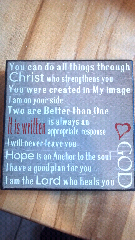 You can do all things through
Christ who strengthens you
You were created in My image
I am on your side
Two are Better than One
it is written is always an
appropriate response
I will never leave you
Hope is an Anchor to the soul
I have a good plan for you
I am the Lord who heals you
GOD